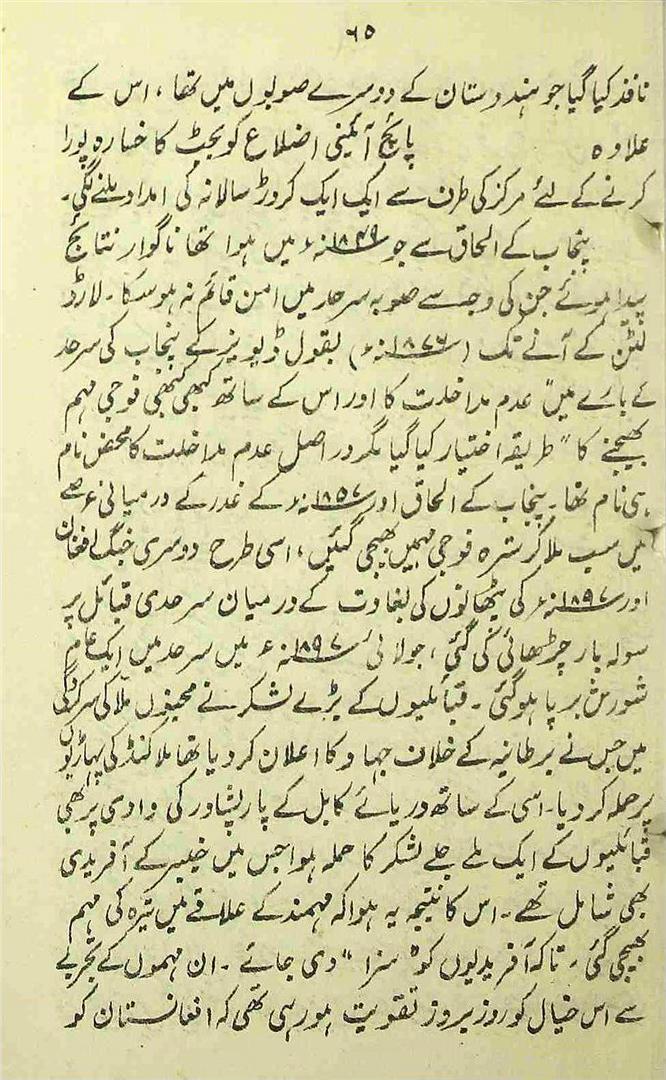 ۶۵
نافذ کیا گیا جو ہندوستان کے دوسرے صوبوں میں تھا، اس کے
علاوہ پانچ آئینی اضلاع کو بجٹ کا خسارہ پورا
کرنے کے لئے مرکز کی طرف سے ایک ایک کروڑ سالانہ کی امداد ملنے لگی۔
پنجاب کے الحاق سے جو ۱۸۴۹ء میں ہوا تھا ناگوار نتائج
پیدا ہوئے جن کی وجہ سے صوبہ سرحد میں امن قائم نہ ہو سکا۔ لارڈ
لٹن کے آنے تک (۱۸۷۶ء) بقول ڈیویز کے پنجاب کی سرحد
کے بارے میں "عدم مداخلت کا اور اس کے ساتھ کبھی کبھی فوجی مہم
بھیجنے کا" طریقہ اختیار کیا گیا مگر دراصل عدم مداخلت کا محض نام
ہی نام تھا۔ پنجاب کے الحاق اور ۱۸۵۷ء کے غدر کے درمیانی عرصے
میں سب ملا کر سترہ فوجی مہمیں بھیجی گئیں، اسی طرح دوسری جنگ افغان
اور ۱۸۹۷ء کی پٹھانوں کی بغاوت کے درمیان سرحدی قبائل پر
سولہ بار چڑھائی کی گئی، جولائی ۱۸۹۷ء میں سرحد میں ایک عام
شورش برپا ہو گئی۔ قبائلیوں کے بڑے لشکر نے مجنوں ملا کی سرکردگی
میں جس نے برطانیہ کے خلاف جہاد کا اعلان کر دیا تھا ملاکنڈ کی پہاڑیوں
پر حملہ کر دیا۔ اسی کے ساتھ دریائے کابل کے پار پشاور کی وادی پر بھی
قبائلیوں کے ایک ملے جلے لشکر کا حملہ ہوا جس میں خیبر کے آفریدی
بھی شامل تھے۔ اس کا نتیجہ یہ ہوا کہ مہمند کے علاقے میں تیرہ کی مہم
بھیجی گئی۔ تاکہ آفریدیوں کو "سزا" دی جائے۔ ان مہموں کے تجربے
سے اس خیال کو روز بروز تقویت ہو رہی تھی کہ افغانستان کو